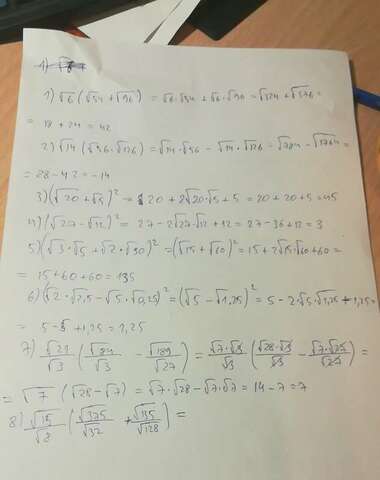 1) √6 (√54 + √96) = √6·√54 + √6·√90 = √324 + √576 =
= 18 + 24 = 42
2) √14 (√56 · √126) = √14·√56 - √14·√126 = √784 - √1764 =
= 28 - 42 = -14
3) (√20 + √5)² = 20 + 2√20·√5 + 5 = 20 + 20 + 5 = 45
4) (√27 - √12)² = 27 - 2√27·√12 + 12 = 27 - 36 + 12 = 3
5) (√3·√5 + √2·√30)² = (√15 + √60)² = 15 + 2√15·√60 + 60 =
= 15 + 60 + 60 = 135
6) (√2·√2,5 - √5·√0,25)² = (√5 - √1,25)² = 5 - 2√5·√1,25 + 1,25 =
= 5 - 5 + 1,25 = 1,25
7) √21/√3 (√84/√3 - √189/√27) = √7·√3/√3 (√28·√3/√3 - √7·√25/√25) =
= √7 (√28 - √7) = √7·√28 - √7·√7 = 14 - 7 = 7
8) √15/√8 (√375/√32 + √135/√128) =